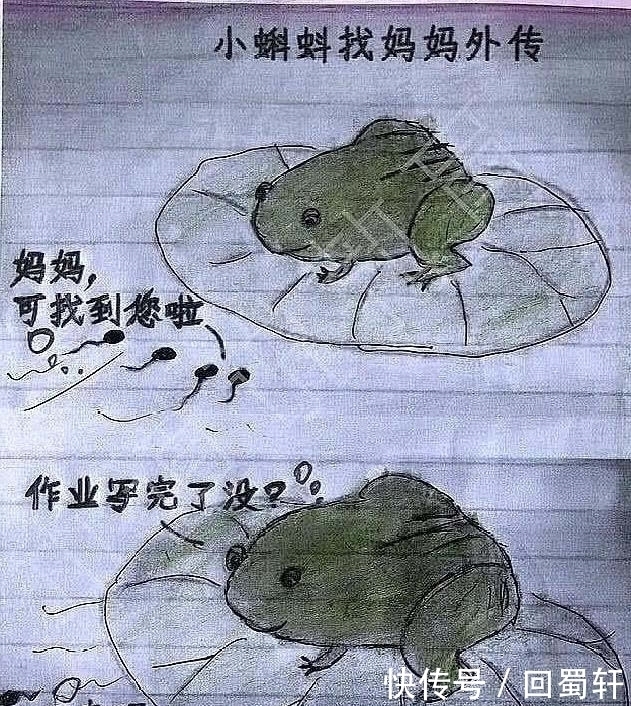 小蝌蚪找妈妈外传
妈妈,
可找到您啦
作业写完了没?
快传号 / 回蜀轩